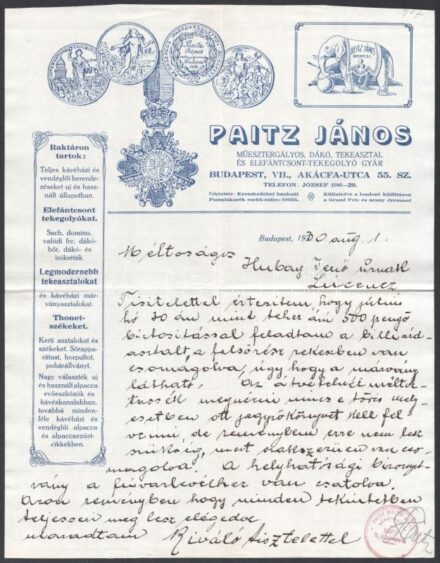 PAITZ JÁNOS
BUDAPEST
PAITZ JÁNOS
MŰESZTERGÁLYOS, DÁKÓ, TEKEASZTAL
ÉS ELEFÁNTCSONT-TEKEGOLYÓ GYÁR
BUDAPEST, VII., AKÁCFA-UTCA 55. SZ.
TELEFON JÓZSEF 106–29.
Kitüntetve a londoni kiállításon
a Grand Prix és arany éremmel
Raktáron
tartok:
Teljes kávéházi és
vendéglői berende-
zéseket uj és hasz-
nált állapotban.
Elefántcsont
tekegolyókat.
Sach, domino,
valódi fr. dákó-
bőr, dákó- és
irókréták.
Legmodernebb
tekeasztalokat
és kávéházi már-
ványasztalokat.
Thonet-
székeket.
Kerti asztalokat és
székeket. Söráppa-
rátust, borpultot,
pohárállványt.
Nagy választék uj
és használt alpacca
evőeszközök és
kávéskanalakban,
továbbá minden-
féle kávéházi és
vendéglői alpacca
és alpaccaezüst-
cikkekben.
Budapest, 1930 aug 1.
Méltóságos
Hubay Jenő úrnak
Tisztelettel értesitem hogy július
hó 30 án mint teher áru 500 pengő
biztositással feladtam a billiárd
asztalt, a felsőrész rekeszben van
csomagolva, úgy hogy a márvány
látható. Az átvételnél méltóz-
tassék megnézni nincs e törés mely
esetben ott jegyzőkönyvet kell fel
venni, de reménylem erre nem lesz
szükség, mert szakszerűen van cso-
magolva. A helyhatósági bizonyit-
vány a fuvarlevélhez van csatolva.
Azon reményben hogy minden tekintetben
teljessen meg lesz elégedve
maradtam Kiváló tisztelettel